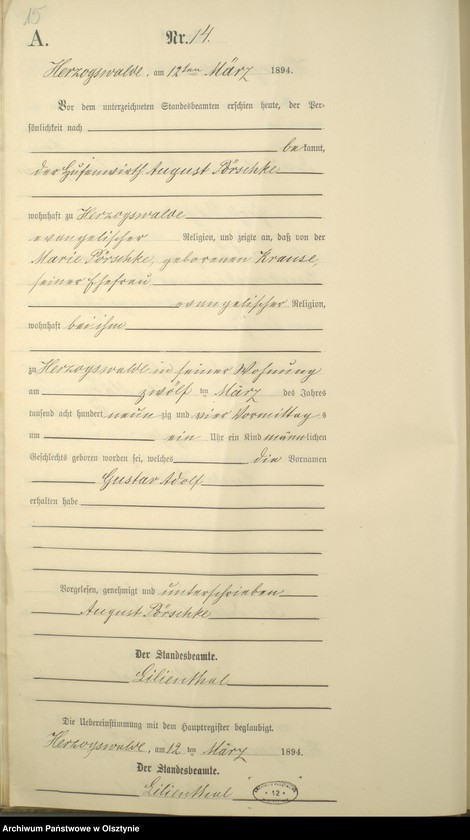 15
A. Nr. 14.
Herzogswalde, am 12ten März 1894.
Vor dem unterzeichneten Standesbeamten erschien heute, der Per-
sönlichkeit nach
bekannt,
der Hufenwirth August Pörschke
wohnhaft zu Herzogswalde
evangelischer Religion, und zeigte an, daß von der
Marie Pörschke, geborenen Krause,
seiner Ehefrau
evangelischer Religion,
wohnhaft bei ihm
zu Herzogswalde in seiner Wohnung
am zwölf ten März des Jahres
tausend acht hundert neun zig und vier Vormittag s
um ein Uhr ein Kind männlichen
Geschlechts geboren worden sei, welches die Vornamen
Gustav Adolf
erhalten habe
Vorgelesen, genehmigt und unterschrieben
August Pörschke
Der Standesbeamte.
Lilienthal
Die Uebereinstimmung mit dem Hauptregister beglaubigt.
Herzogswalde, am 12 ten März 1894.
Der Standesbeamte.
Lilienthal
* 12 *
Archiwum Państwowe w Olsztynie